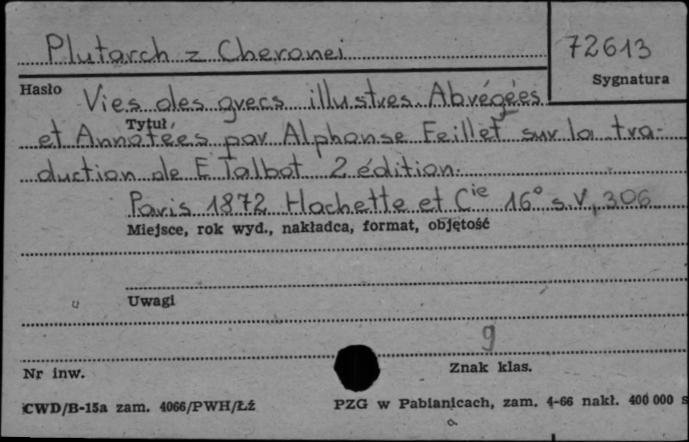 Plutarch z Cheronei
72613
Sygnatura
Hasło
Vies des grecs illustres. Abrégées
Tytuł
et Annotées par Alphonse Feillet sur la tra-
duction de E Talbot 2 édition.
Paris 1872 Hachette et Cie 16° s. V, 306
Miejsce, rok wyd., nakładca, format, objętość
Uwagi
9
Nr inw.
Znak klas.
CWD/B-15a zam. 4066/PWH/Łź
PZG w Pabianicach, zam. 4-66 nakł. 400 000 s